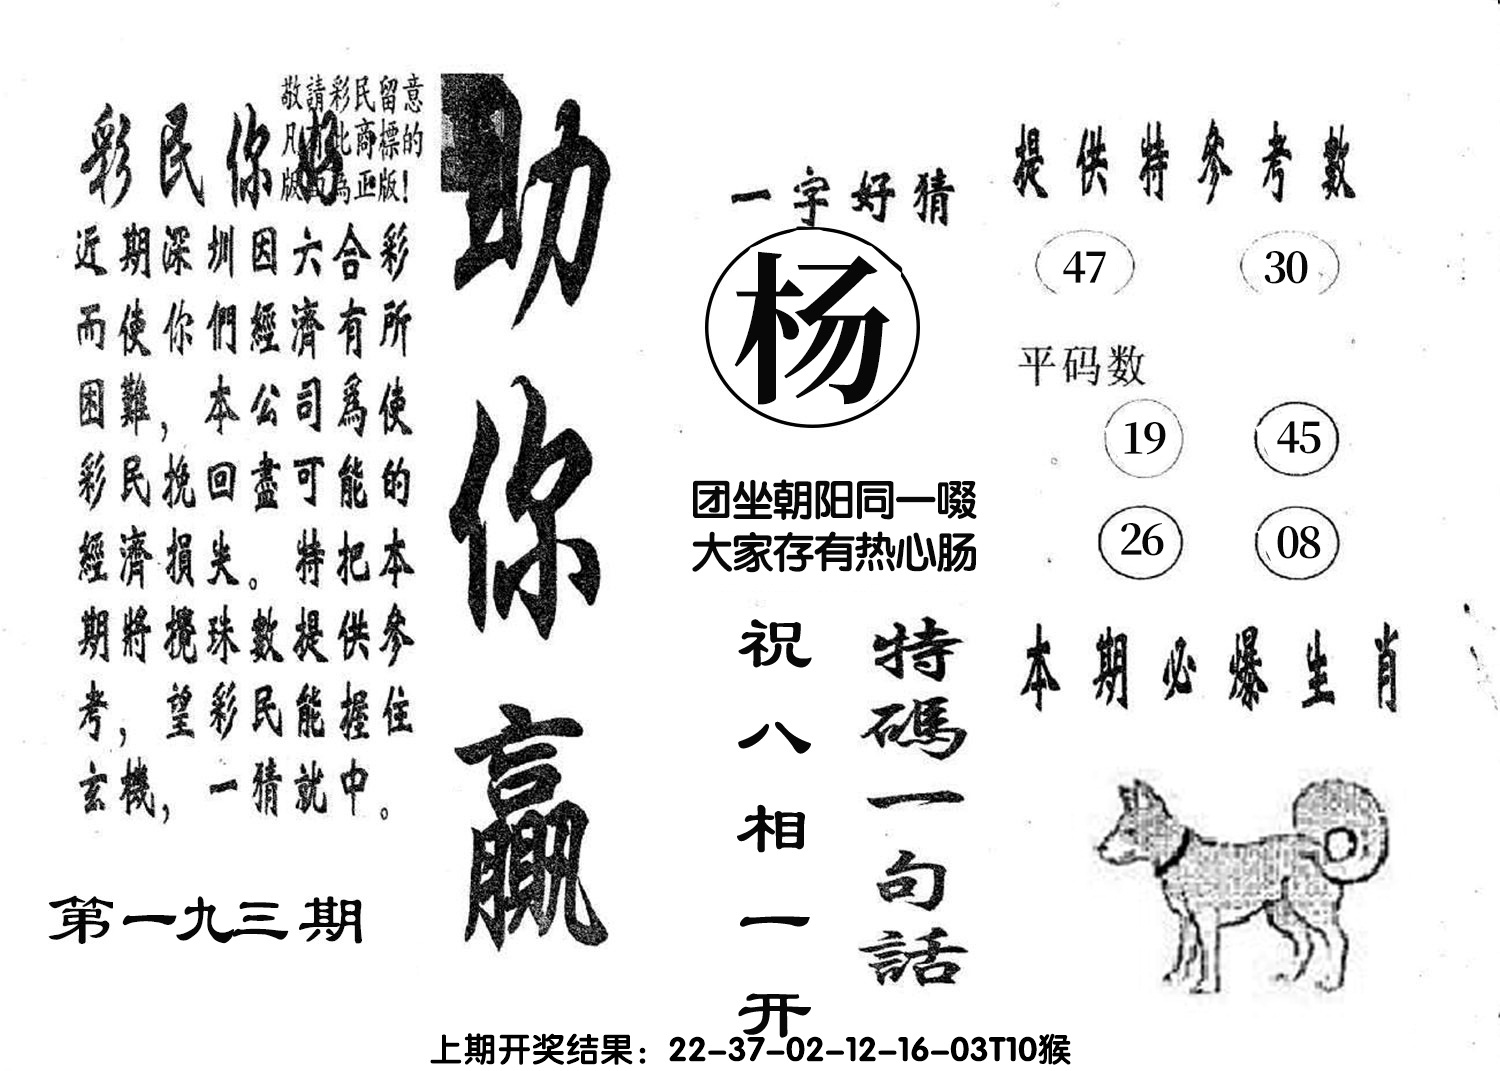 敬請彩民留意
凡有此商標的
版面為正版！
彩民你好
近期深圳因六合彩
而使你們經濟有所
困難，本公司爲使
彩民挽回盡可能的
經濟損失。特把本
期將攪珠數提供參
考，望彩民能握住
玄機，一猜就中。
第一九三期
助你贏
一字好猜
杨
团坐朝阳同一啜
大家存有热心肠
特碼一句話
祝八相一开
提供特参考數
47 30
平码数
19 45
26 08
本期必爆生肖
上期开奖结果：22-37-02-12-16-03T10猴